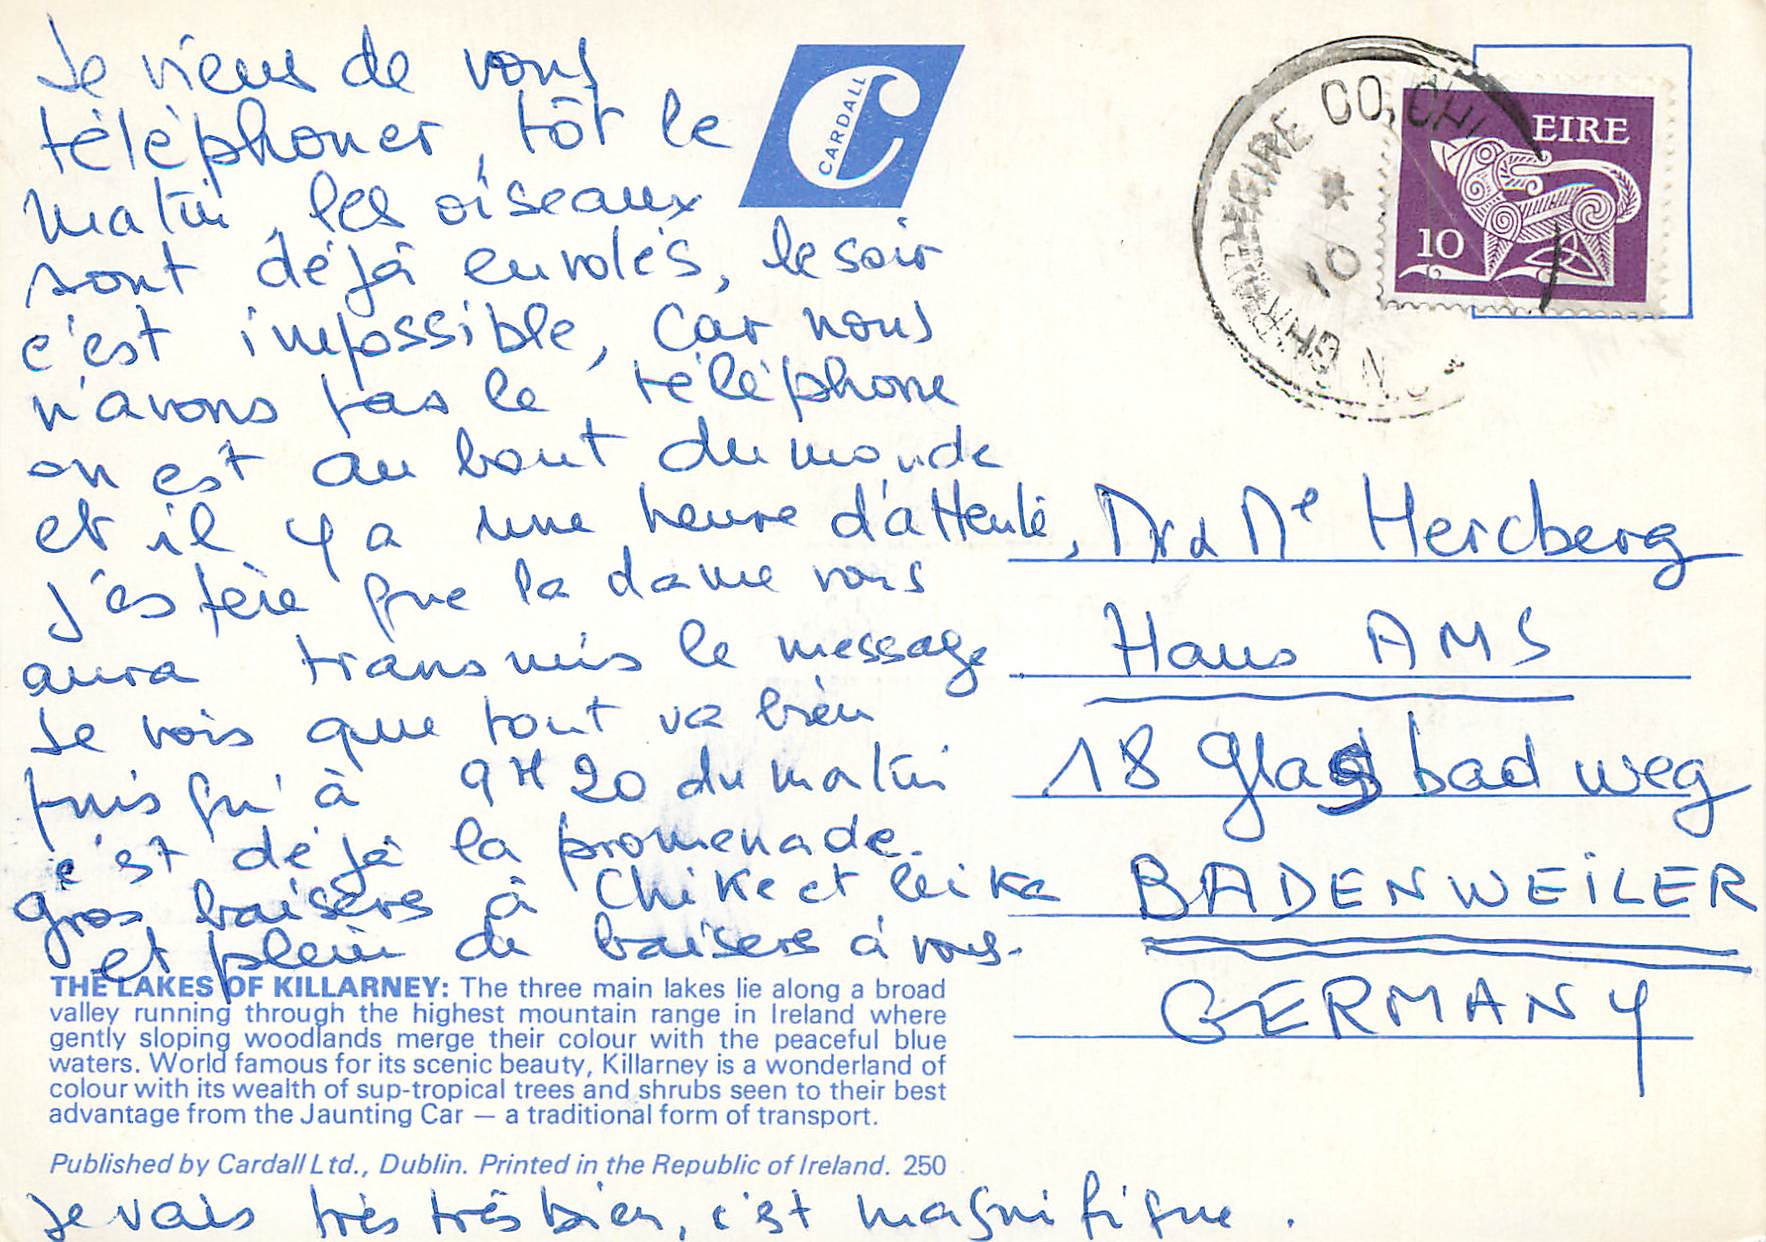 Je viens de vous
téléphoner, tôt le
matin, les oiseaux
sont déjà envolés, le soir
c'est impossible, car nous
n'avons pas le téléphone
on est au bout du monde
et il y a une heure d'attente,
j'espère que la dame vous
aura transmis le message
Je vois que tout va bien
puisqu'à 9H20 du matin
c'est déjà la promenade.
gros baisers à Chike et leika
et plein de baisers à vous.
THE LAKES OF KILLARNEY: The three main lakes lie along a broad
valley running through the highest mountain range in Ireland where
gently sloping woodlands merge their colour with the peaceful blue
waters. World famous for its scenic beauty, Killarney is a wonderland of
colour with its wealth of sup-tropical trees and shrubs seen to their best
advantage from the Jaunting Car — a traditional form of transport.
Published by Cardall Ltd., Dublin. Printed in the Republic of Ireland. 250
Je vais très très bien, c'est magnifique.
CARDALL
EIRE
10
CO. CHI
10
Hercberg
Haus AMS
18 Glasbad weg
BADENWEILER
GERMANY